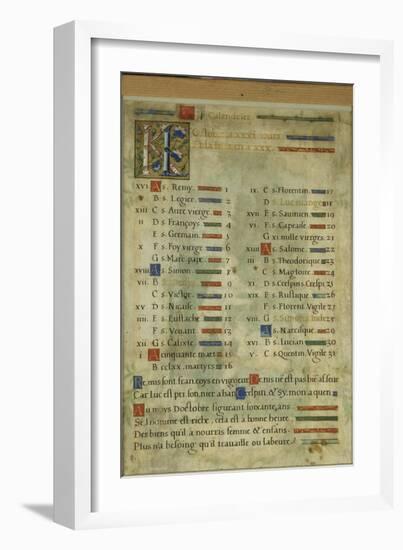 Calendrier
Octobre a xxxi jours
Et la lune en a xxx.
KL
xvi A s. Remy. 1
v B s. Legier. 2
xiii C s. Aure vierge. 3
ii D s. Françoys. 4
E s. Germain. 5
x F s. Foy vierge 6
G s. Marc pape. 7
xviii A s. Simon. 8
vii B 9
C s. 10
xv D s. Nicaise. 11
iiii E s. Eustache 12
F s. Venant 13
xii G s. Calixte. 14
i A cinquante mart. 15
B cclxx. martyrs 16
ix C s. Florentin. 17
D s. Luc evange. 18
xvii E s. Savinien. 19
vi F s. Capraise. 20
G xi mille vierges. 21
xiiii A s. Salome. 22
iii B s. Theodorique. 23
C s. Magloire. 24
xi D s. Crespin s. Crispi. 25
E s. Rustique 26
xix F s. Florent Vigile 27
viii G s. Simon s. Iude 28
A s. Narcisque. 29
xvi B s. Lucian 30
v C s. Quentin. Vigile 31
Remis sont françoys en vigueur Denis n'est pas bie asseur
Car luc est prisonnier a han Crespin & sy. mon a quen
Au moys Doctobre figurant soixante ans
Si l'homme est riche, cela est à bonne heure
Des biens qu'il a nourrist femme & enfans
Plus n'a besoing qu'il travaille ou labeure